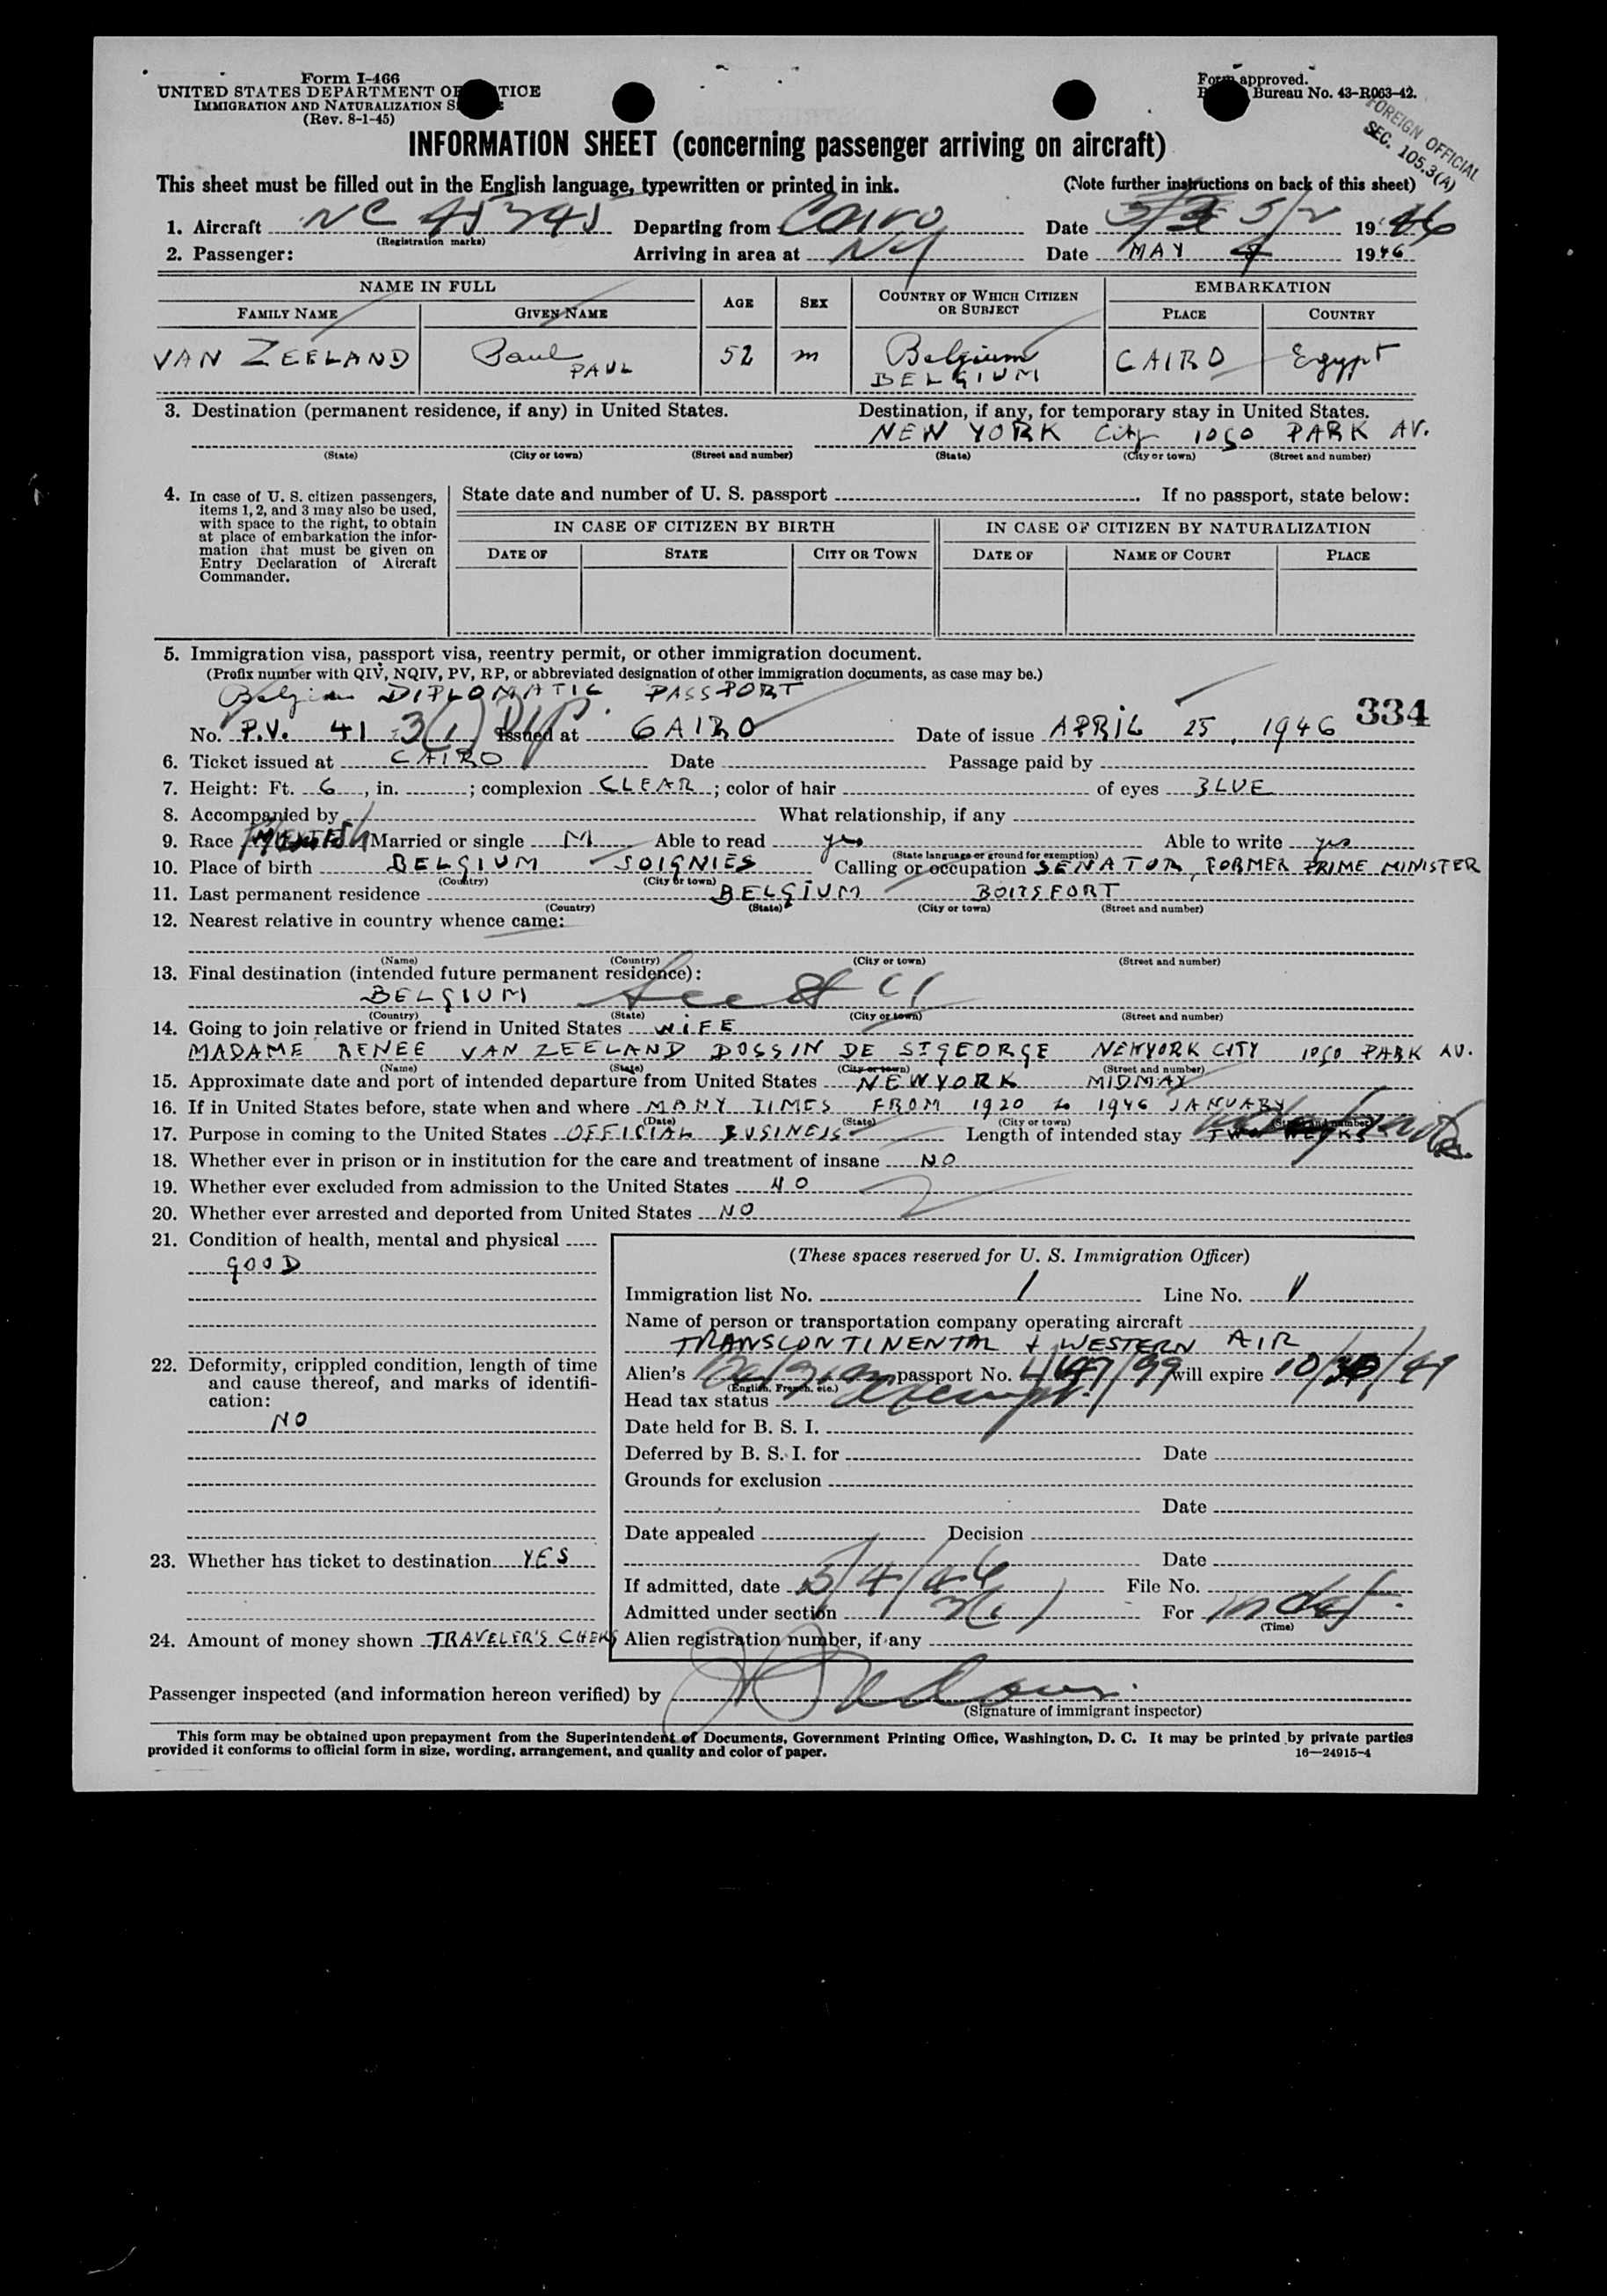 Form I-466
UNITED STATES DEPARTMENT OF JUSTICE
IMMIGRATION AND NATURALIZATION SERVICE
(Rev. 8-1-45)
Form approved.
Bureau No. 43-R063-42.
FOREIGN OFFICIAL
SEC. 105.3(A)
INFORMATION SHEET (concerning passenger arriving on aircraft)
This sheet must be filled out in the English language, typewritten or printed in ink. (Note further instructions on back of this sheet)
1. Aircraft NC 45345 Departing from Cairo Date 5/2 1946
(Registration marks)
2. Passenger: Arriving in area at NY Date MAY 4 1946
NAME IN FULL AGE SEX COUNTRY OF WHICH CITIZEN OR SUBJECT EMBARKATION
FAMILY NAME GIVEN NAME PLACE COUNTRY
VAN ZEELAND Paul 52 m Belgium CAIRO Egypt
PAUL BELGIUM
3. Destination (permanent residence, if any) in United States. Destination, if any, for temporary stay in United States.
NEW YORK City 1050 PARK AV.
(State) (City or town) (Street and number) (State) (City or town) (Street and number)
4. In case of U. S. citizen passengers, items 1, 2, and 3 may also be used, with space to the right, to obtain at place of embarkation the information that must be given on Entry Declaration of Aircraft Commander.
State date and number of U. S. passport . If no passport, state below:
IN CASE OF CITIZEN BY BIRTH IN CASE OF CITIZEN BY NATURALIZATION
DATE OF STATE CITY OR TOWN DATE OF NAME OF COURT PLACE
5. Immigration visa, passport visa, reentry permit, or other immigration document.
(Prefix number with QIV, NQIV, PV, RP, or abbreviated designation of other immigration documents, as case may be.)
Belgian DIPLOMATIC PASSPORT
334
No. P.V. 41 3(1) Dip. Issued at CAIRO Date of issue APRIL 25, 1946
6. Ticket issued at CAIRO Date Passage paid by
7. Height: Ft. 6, in. ; complexion CLEAR; color of hair of eyes BLUE
8. Accompanied by What relationship, if any
9. Race Married or single M Able to read yes Able to write yes
(State language or ground for exemption)
10. Place of birth BELGIUM SOIGNIES Calling or occupation SENATOR, FORMER PRIME MINISTER
(Country) (City or town)
11. Last permanent residence BELGIUM BOITSFORT
(Country) (State) (City or town) (Street and number)
12. Nearest relative in country whence came:
(Name) (Country) (City or town) (Street and number)
13. Final destination (intended future permanent residence):
BELGIUM See # 11
(Country) (State) (City or town) (Street and number)
14. Going to join relative or friend in United States WIFE
MADAME RENEE VAN ZEELAND DOSSIN DE ST GEORGE NEWYORK CITY 1050 PARK AV.
(Name) (State) (City or town) (Street and number)
15. Approximate date and port of intended departure from United States NEW YORK MIDMAY
16. If in United States before, state when and where MANY TIMES FROM 1920 to 1946 JANUARY
(Date) (State) (City or town) (Street and number)
17. Purpose in coming to the United States OFFICIAL BUSINESS Length of intended stay TWO WEEKS
18. Whether ever in prison or in institution for the care and treatment of insane NO
19. Whether ever excluded from admission to the United States NO
20. Whether ever arrested and deported from United States NO
21. Condition of health, mental and physical
GOOD
22. Deformity, crippled condition, length of time and cause thereof, and marks of identification:
NO
23. Whether has ticket to destination YES
24. Amount of money shown TRAVELER'S CHEKS
(These spaces reserved for U. S. Immigration Officer)
Immigration list No. 1 Line No. 1
Name of person or transportation company operating aircraft
TRANSCONTINENTAL + WESTERN AIR
Alien's Belgian passport No. will expire
(English, French, etc.)
Head tax status exempt
Date held for B. S. I.
Deferred by B. S. I. for Date
Grounds for exclusion
Date
Date appealed Decision
Date
If admitted, date 5/4/46 File No.
Admitted under section 3(1) For indef.
(Time)
Alien registration number, if any
Passenger inspected (and information hereon verified) by
(Signature of immigrant inspector)
This form may be obtained upon prepayment from the Superintendent of Documents, Government Printing Office, Washington, D. C. It may be printed by private parties
provided it conforms to official form in size, wording, arrangement, and quality and color of paper. 16—24915-4